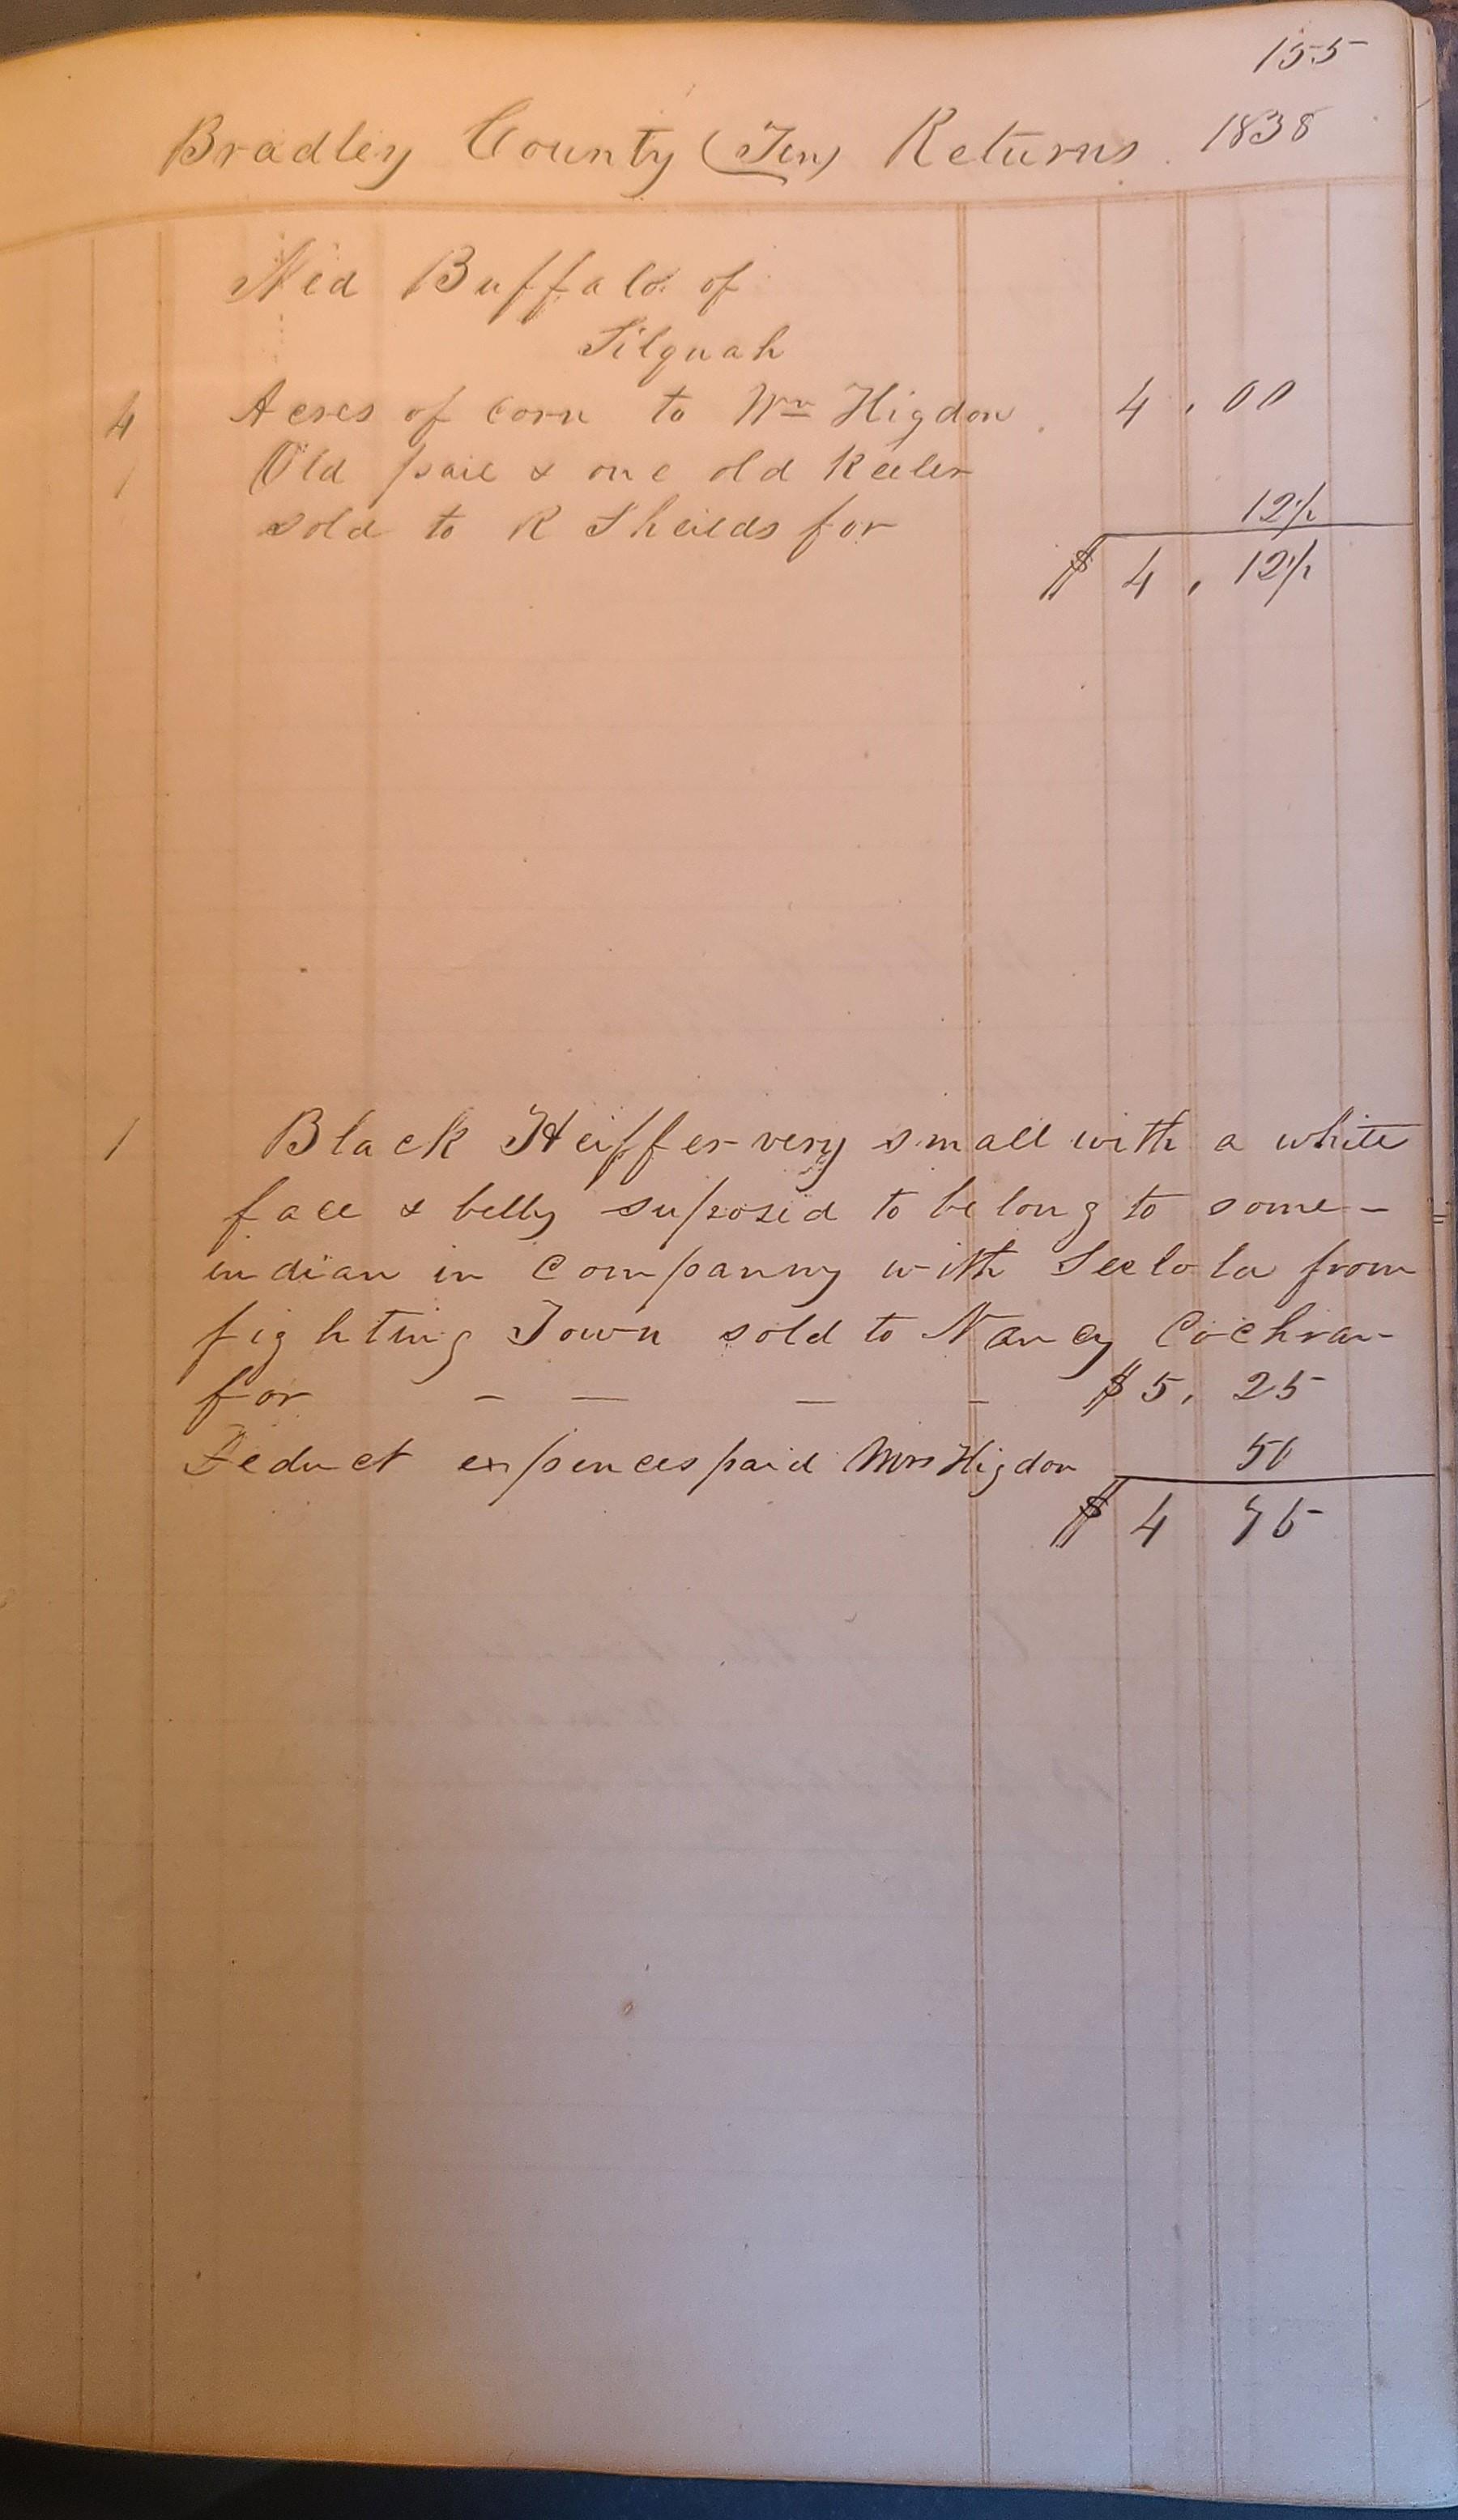 155
Bradley County (Ten) Returns 1838
Ned Buffalo of
Silquah
4 Acres of Corn to Wm Higdon 4.00
1 Old pail & one old Keeler
sold to R Sheilds for 12½
$ 4.12½
1 Black Heiffer very small with a white
face & belly suposed to belong to some-
indian in Companny with Seelola from
fighting Town sold to Nancy Cochran
for - — — - $5.25
Deduct expences paid Mrs Higdon 50
$ 4 75